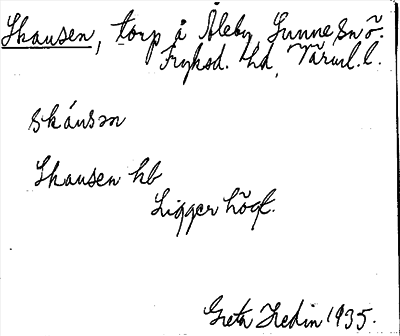 Skausen, torp å Åleby Sunne sn ö.
Fryksd. hd, Värml. l.
skáusən
Skausen hb
Ligger högt.
Greta Hedin 1935.